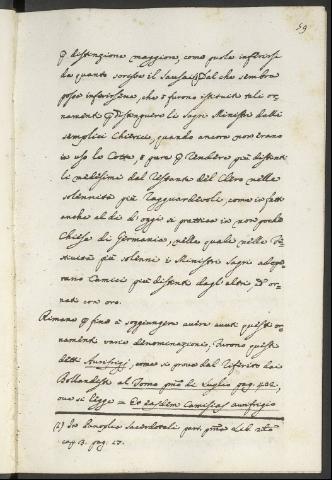 59
p distinzione maggiore, come puole inferirsi
da quanto scrisse il Saussai (1) Dal che sembra
possa inferirsene, che furono istituiti tali or,
namenti p distinguere li Sagri Ministri dalli
semplici Chierici, quando ancora non erano
in uso le Cotte, o pure p rendere più distinti
li medesimi dal restante del Clero nelle
solennità più ragguardevoli, come in fatti
anche al dì di oggi si prattica in non poche
Chiese di Germania, nelle quali nelle Fe,
stività più solenni i Ministri Sagri adope,
rano Camici più distinti dagl'altri, ed or,
nati con oro.
Rimane p fine a soggiungere avere avuti questi or,
namenti varie denominazioni, furono questi
detti Aurifrigj, come si prova dal riferito dai
Bollandisti al Tomo pmo di Luglio pag.
ove si legge = Et easdem Camisias aurifrigio
(1) In Panoplia Sacerdotali part. pma Lib.
cap. 13. pag. 27.